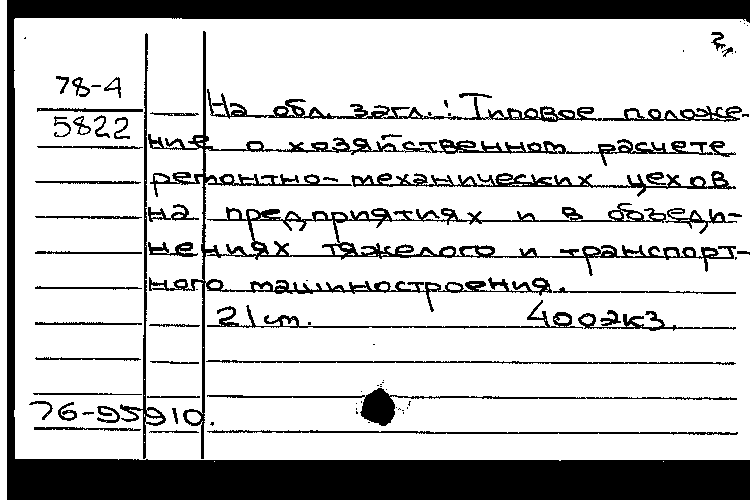 2
78-4
На обл. загл.: Типовое положе-
5822
ние о хозяйственном расчете
ремонтно-механических цехов
на предприятиях и в объеди-
нениях тяжелого и транспорт-
ного машиностроения.
21 ст. 400экз.
76-95910.